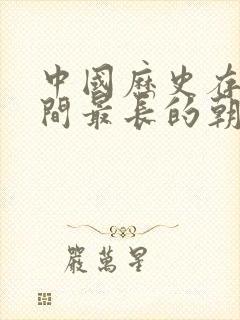 中國歷史存
間最長的朝
嚴萬星